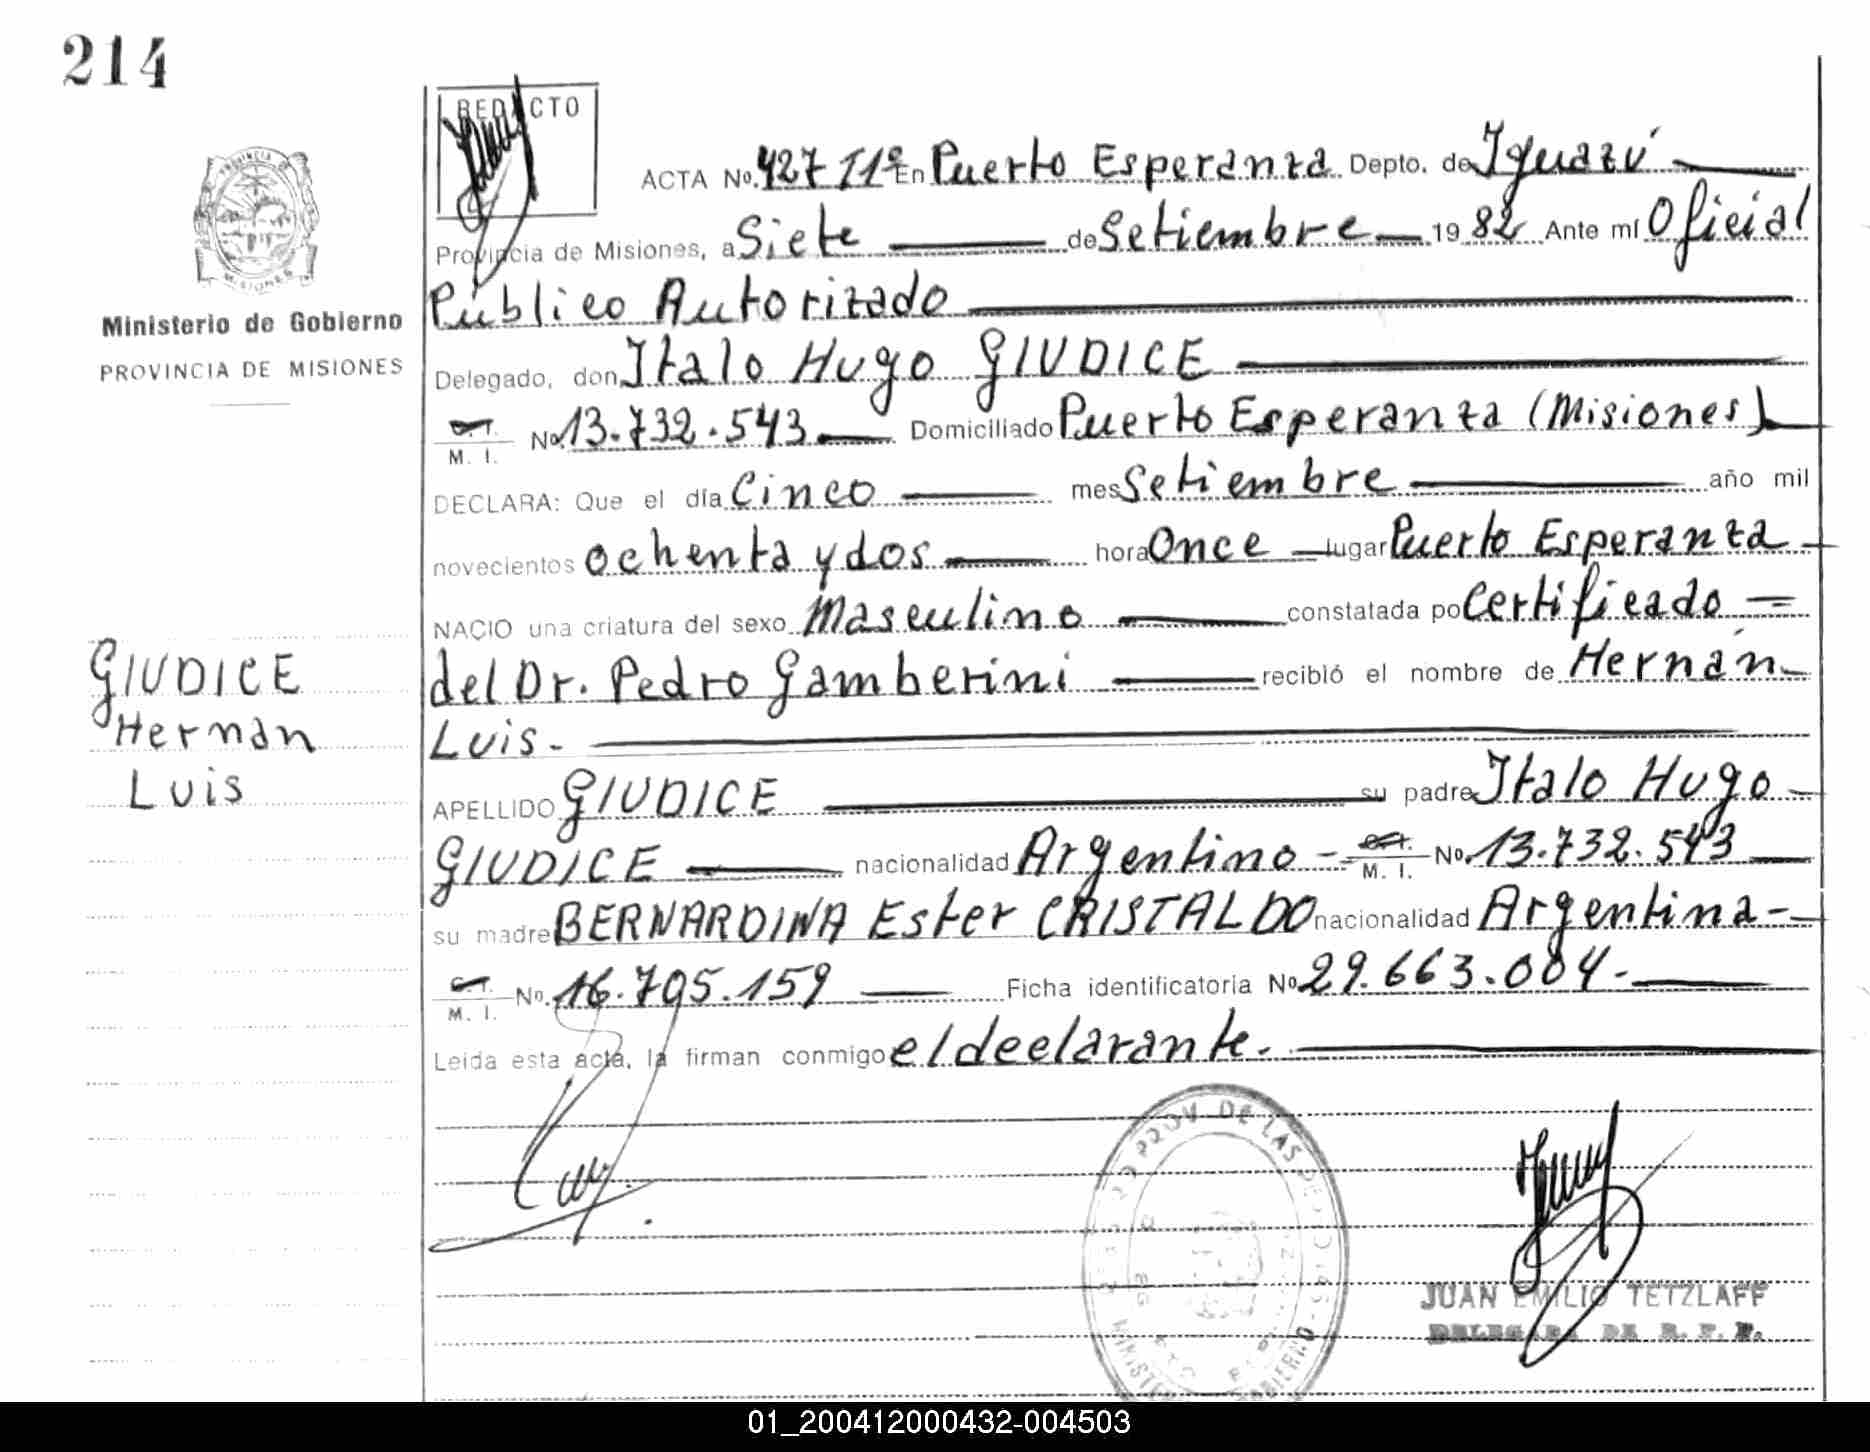 214
REDACTO
ACTA No. 427 T1º En Puerto Esperanza Depto. de Iguazú
Provincia de Misiones, a Siete de Setiembre 1982 Ante mí Oficial
Público Autorizado
Ministerio de Gobierno
PROVINCIA DE MISIONES
Delegado, don Italo Hugo GIUDICE
M. I. No. 13.732.543 Domiciliado Puerto Esperanza (Misiones)
DECLARA: Que el día Cinco mes Setiembre año mil
novecientos ochenta y dos hora Once lugar Puerto Esperanza
NACIO una criatura del sexo Masculino constatada po Certificado
del Dr. Pedro Gamberini recibió el nombre de Hernán
Luis.
GIUDICE
Hernan
Luis
APELLIDO GIUDICE su padre Italo Hugo
GIUDICE nacionalidad Argentino - M. I. No. 13.732.543
su madre BERNARDINA Ester CRISTALDO nacionalidad Argentina-
M. I. No. 16.705.159 Ficha identificatoria No 29.663.004.
Leida esta acta, la firman conmigo el declarante.
PROV DE LAS
JUAN EMILIO TETZLAFF
01_200412000432-004503